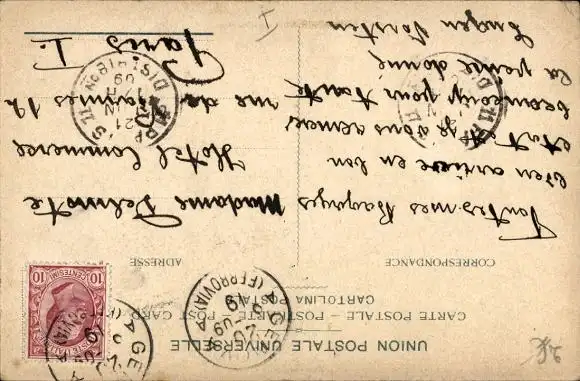 UNION POSTALE UNIVERSELLE
CARTE POSTALE - POST CARD
CARTOLINA POSTALE
CORRESPONDANCE
ADRESSE
Toutes mes Bagages
bien arrivé en bon
etat je vous remercie
beaucoup pour toute
la peine donné
Eugen
Madame Delmotte
Hotel Commerce
rue de Vannes 12
Paris
I
10
CENTESIMI
(FERROVIA)
DISTRIB
09